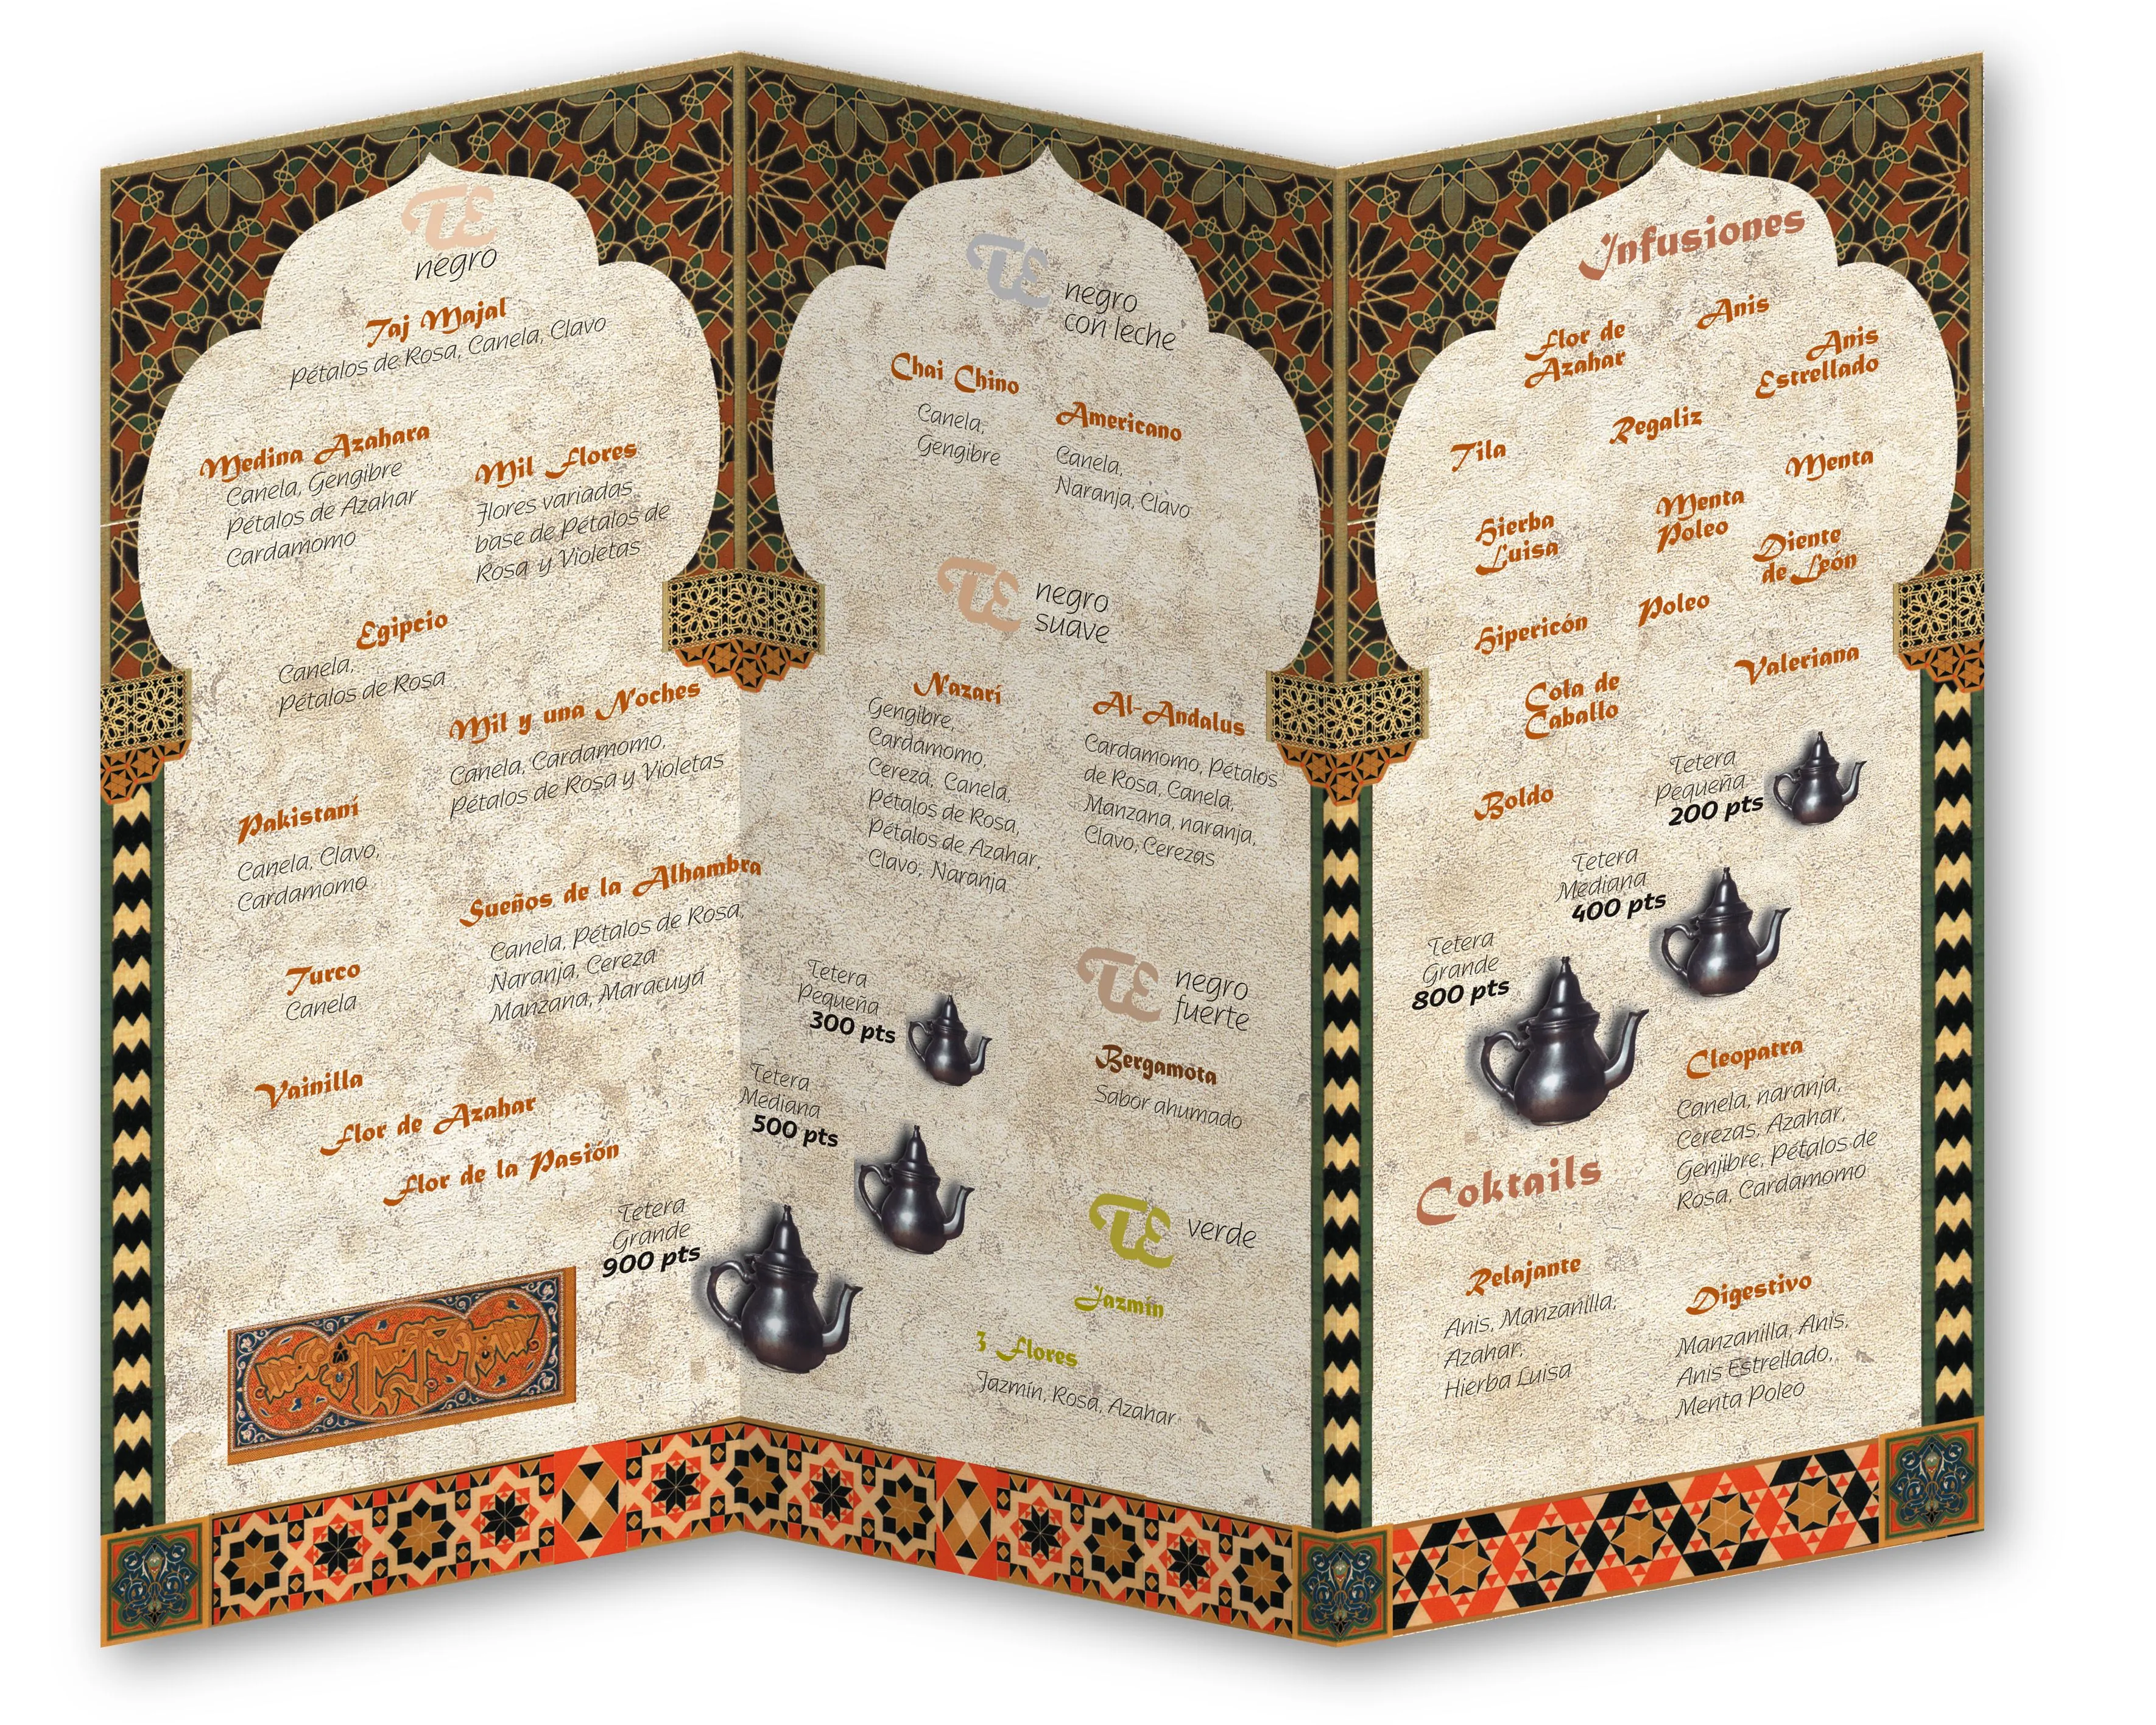 TE
negro
Taj Majal
Pétalos de Rosa, Canela, Clavo
Medina Azahara
Canela, Gengibre
Pétalos de Azahar
Cardamomo
Mil Flores
Flores variadas
base de Pétalos de
Rosa y Violetas
Egipcio
Canela,
Pétalos de Rosa
Mil y una Noches
Canela, Cardamomo,
Pétalos de Rosa y Violetas
Pakistaní
Canela, Clavo,
Cardamomo
Sueños de la Alhambra
Canela, Pétalos de Rosa,
Naranja, Cereza
Manzana, Maracuyá
Turco
Canela
Vainilla
Flor de Azahar
Flor de la Pasión
Tetera
Grande
900 pts
TE
negro
con leche
Chai Chino
Canela,
Gengibre
Americano
Canela,
Naranja, Clavo
TE
negro
suave
Nazarí
Gengibre,
Cardamomo,
Cereza, Canela,
Pétalos de Rosa,
Pétalos de Azahar,
Clavo, Naranja
Al-Andalus
Cardamomo, Pétalos
de Rosa, Canela,
Manzana, naranja,
Clavo, Cerezas
Tetera
Pequeña
300 pts
Tetera
Mediana
500 pts
TE
negro
fuerte
Bergamota
Sabor ahumado
TE
verde
Jazmín
3 Flores
Jazmín, Rosa, Azahar
Infusiones
Flor de
Azahar
Anis
Anis
Estrellado
Tila
Regaliz
Menta
Hierba
Luisa
Menta
Poleo
Diente
de León
Hipericón
Poleo
Valeriana
Cola de
Caballo
Boldo
Tetera
Pequeña
200 pts
Tetera
Mediana
400 pts
Tetera
Grande
800 pts
Cleopatra
Canela, naranja,
Cerezas, Azahar,
Genjibre, Pétalos de
Rosa, Cardamomo
Coktails
Relajante
Anis, Manzanilla,
Azahar,
Hierba Luisa
Digestivo
Manzanilla, Anis,
Anis Estrellado,
Menta Poleo